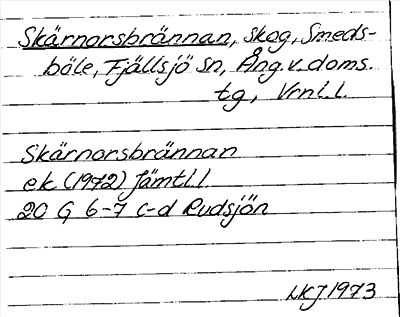 Skärnorsbrännan, skog, Smeds-
böle, Fjällsjö sn, Ång. v. doms.
tg, Vrnl. l.
Skärnorsbrännan
ek (1972) Jämtl. l.
20 G 6-7 c-d Rudsjön
LKJ 1973